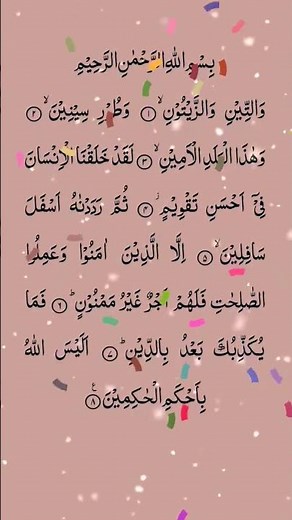 بِسْمِ اللهِ الرَّحْمٰنِ الرَّحِيْمِ
وَالتِّيْنِ وَالزَّيْتُوْنِ ۙ﴿١﴾ وَطُوْرِ سِيْنِيْنَ ۙ﴿٢﴾
وَهٰذَا الْبَلَدِ الْاَمِيْنِ ۙ﴿٣﴾ لَقَدْ خَلَقْنَا الْاِنْسَانَ
فِيْۤ اَحْسَنِ تَقْوِيْمٍ ۫﴿٤﴾ ثُمَّ رَدَدْنٰهُ اَسْفَلَ
سَافِلِيْنَ ۙ﴿٥﴾ اِلَّا الَّذِيْنَ اٰمَنُوْا وَعَمِلُوا
الصّٰلِحٰتِ فَلَهُمْ اَجْرٌ غَيْرُ مَمْنُوْنٍ ؕ﴿٦﴾ فَمَا
يُكَذِّبُكَ بَعْدُ بِالدِّيْنِ ؕ﴿٧﴾ اَلَيْسَ اللهُ
بِاَحْكَمِ الْحٰكِمِيْنَ ۠﴿٨﴾